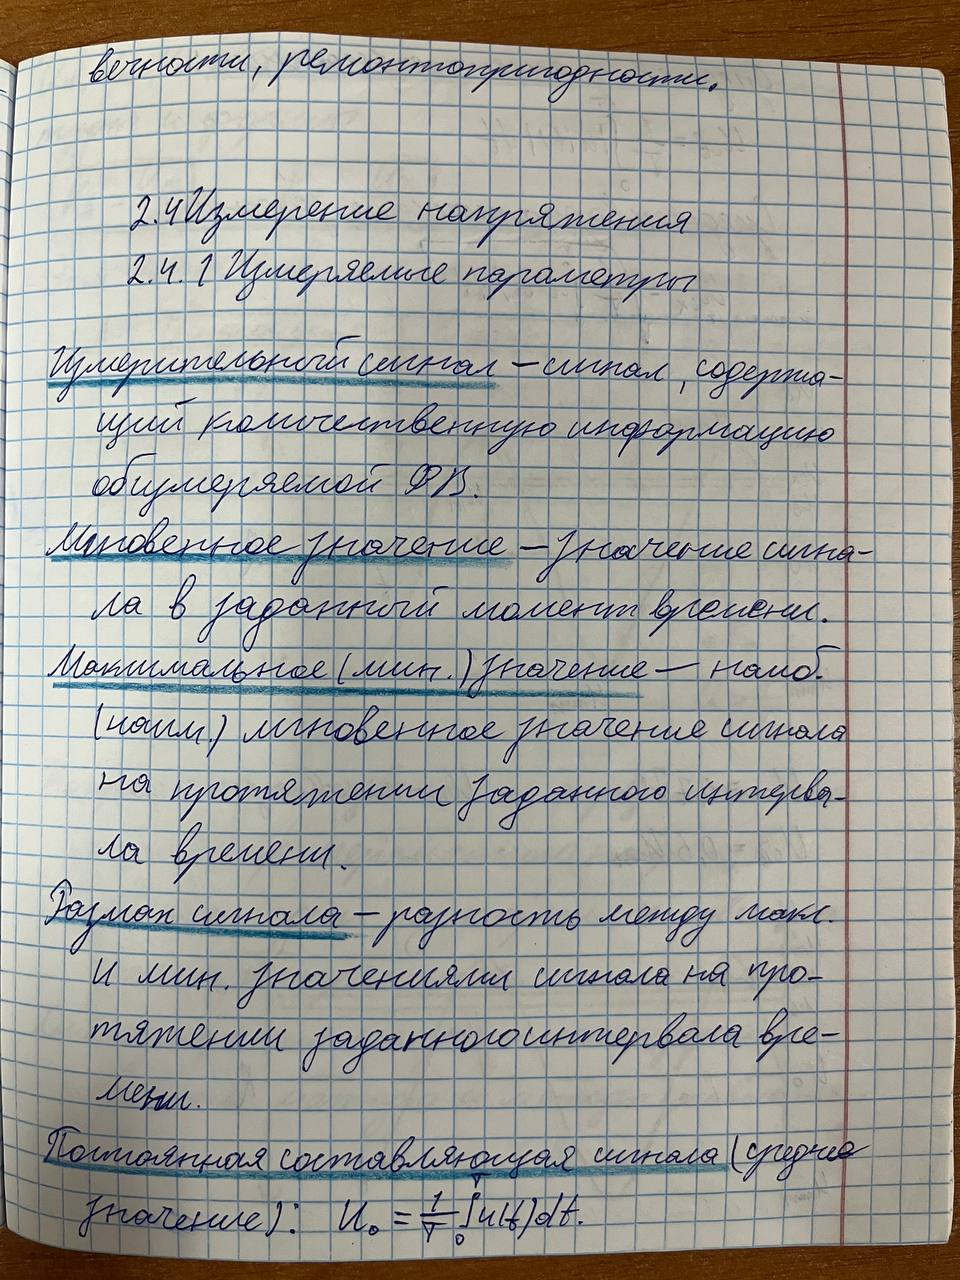 вечности, ремонтопригодности.
2.4 Измерение напряжения
2.4.1 Измеряемые параметры
Измерительный сигнал – сигнал, содержа-
щий количественную информацию
об измеряемой ФВ.
Мгновенное значение – значение сигна-
ла в заданный момент времени.
Максимальное (мин.) значение – наиб.
(наим.) мгновенное значение сигнала
на протяжении заданного интерва-
ла времени.
Размах сигнала – разность между макс.
и мин. значениями сигнала на про-
тяжении заданного интервала вре-
мени.
Постоянная составляющая сигнала (среднее
значение): U₀ = 1/T ∫₀ᵀ u(t)dt.